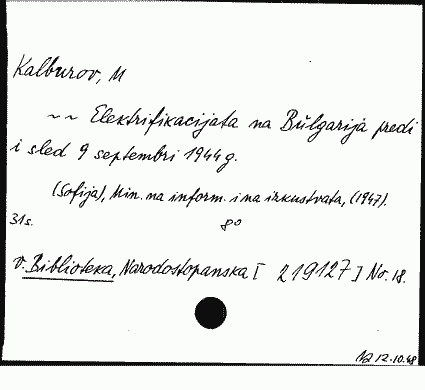 Kalburov, M
~~ Elektrifikacijata na Bŭlgarija predi
i sled 9 septembri 1944 g.
(Sofija), Min. na inform. i na izkustvata, (1947).
31s. 8°
v. Biblioteka, Narodostopanska [ 219127 ] No. 18.
12.10.48